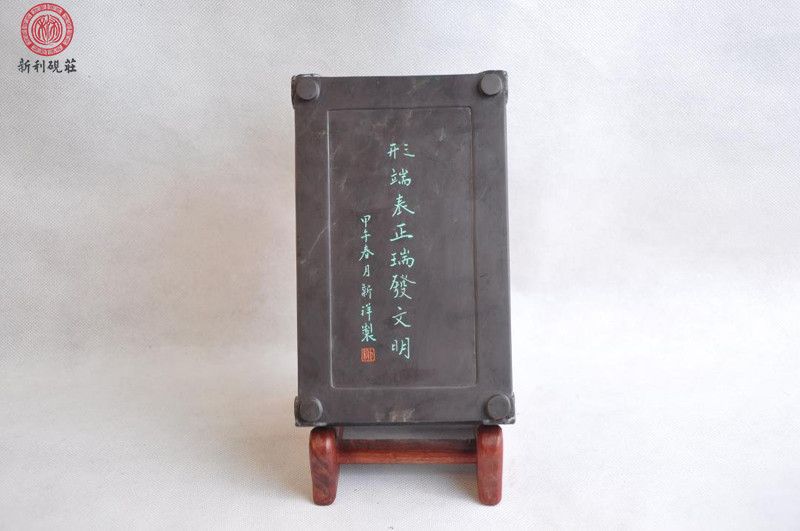 新利砚莊
形端表正瑞發文明
甲午春月新祥製